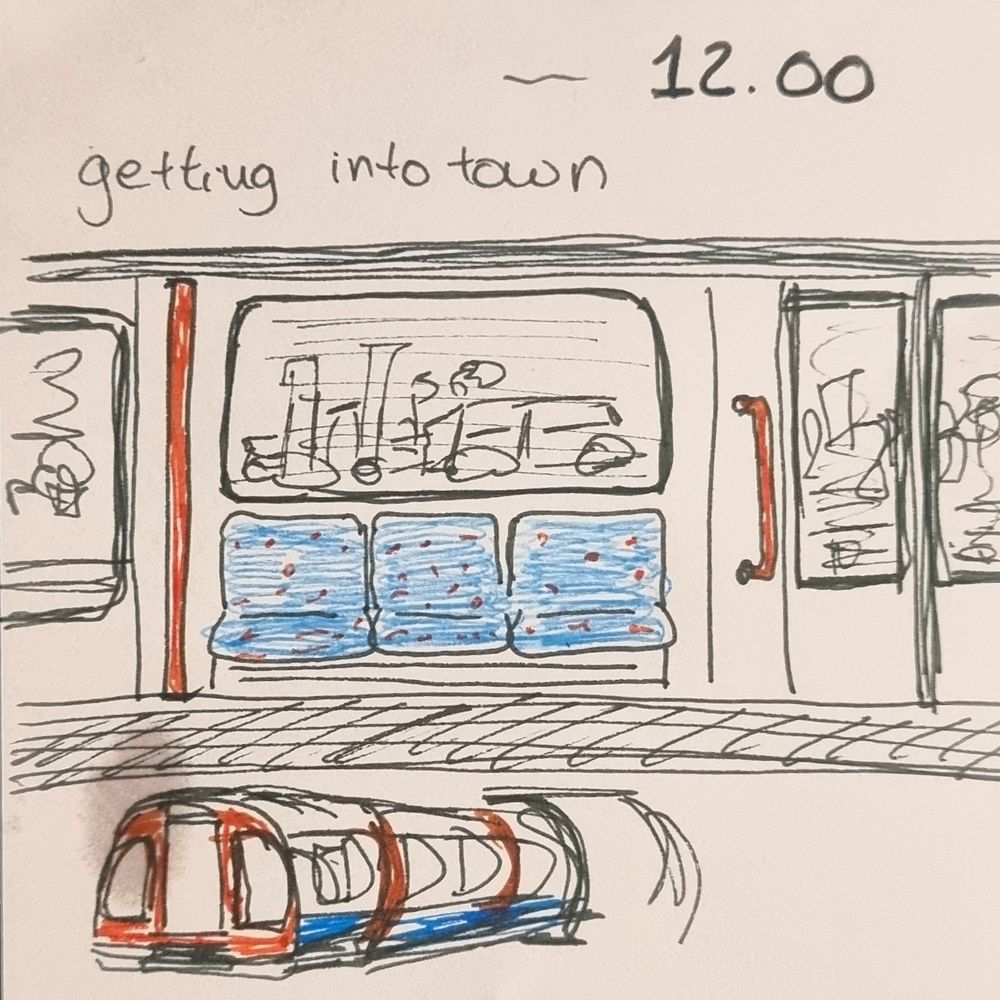 ~ 12.00
getting into town